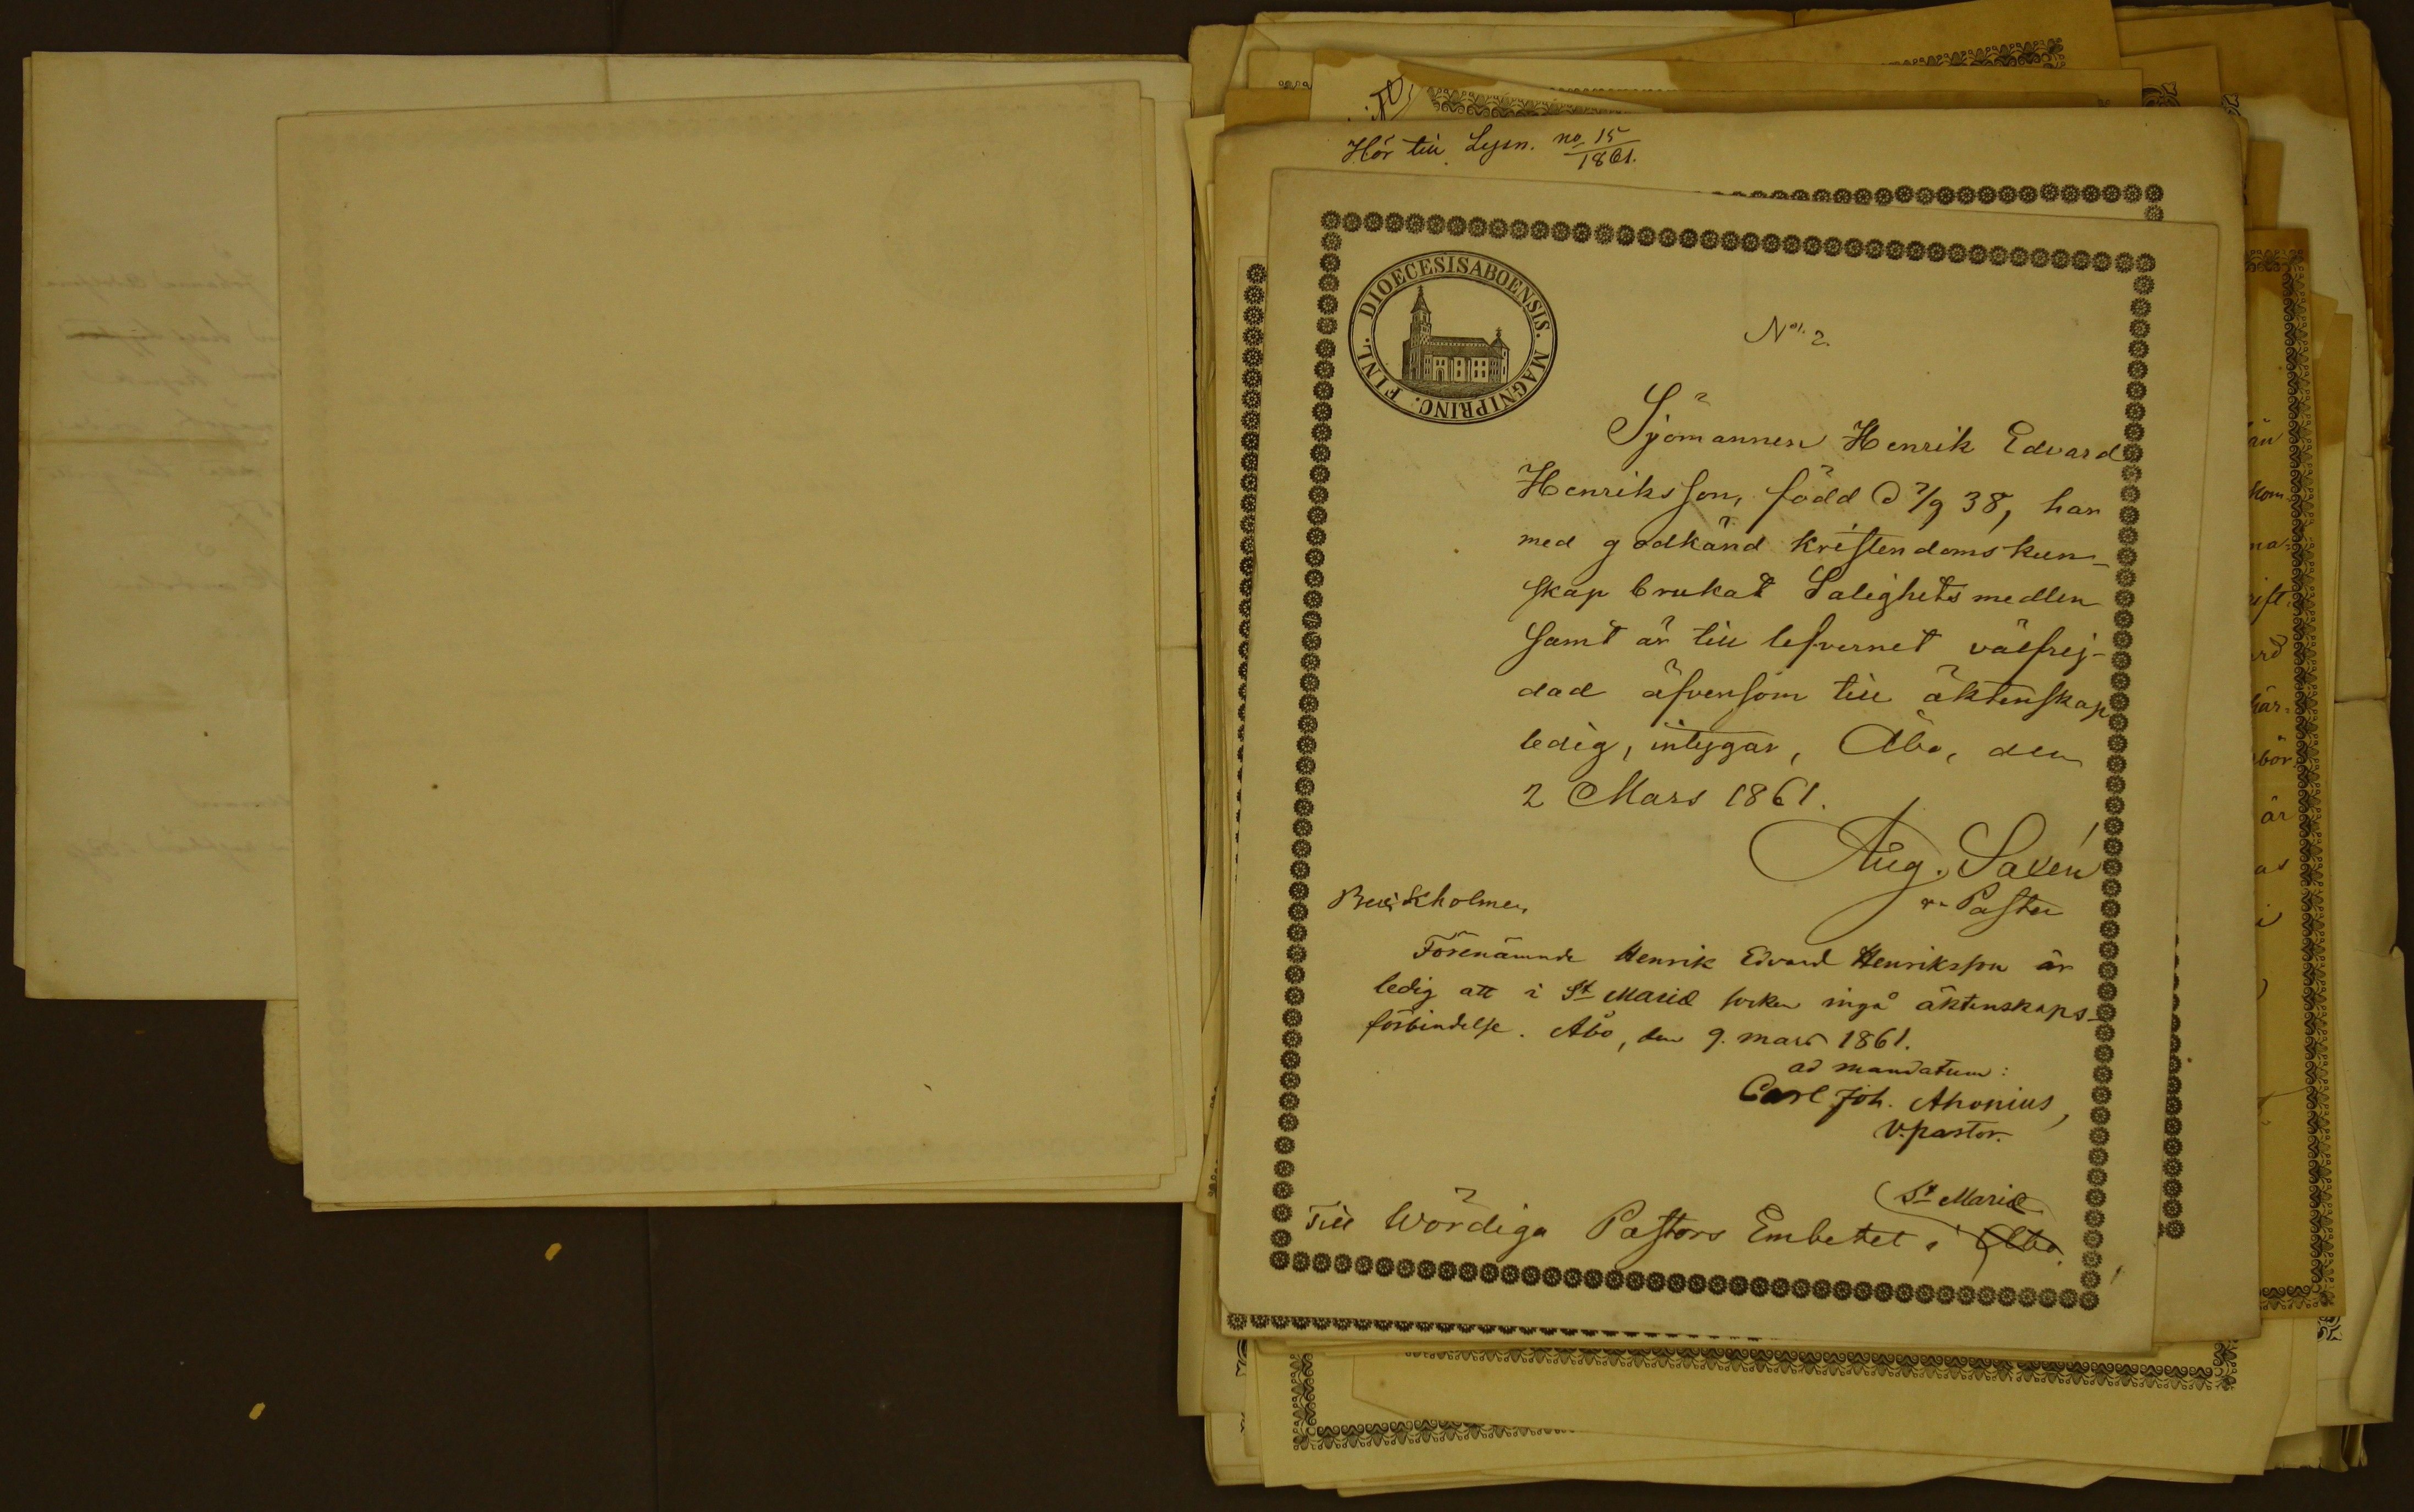 Hör till Lysn. no. 15/1861.
DIOECESIS ABOENSIS. MAGNI PRINC. FINL.
No. 2.
Sjömannen Henrik Edvard
Henriksson, född d 7/9 38, har
med godkänd kristendomskun-
skap brukat Salighetsmedlen
samt är till lefvernet välfrej-
dad äfvensom till äktenskap
ledig, intygar, Åbo, den
2 Mars 1861.
Aug. Saxén
v. Pastor
Förenämnde Henrik Edvard Henriksson är
ledig att i St Mariæ socken ingå äktenskaps-
förbindelse. Åbo, den 9. mars 1861.
ad mandatum:
Carl Joh. Ahonius,
V. pastor.
St Mariæ
Till Wördiga Pastors Embetet i Åbo.
än
kom-
na-
rift
här-
bör
är
as
i